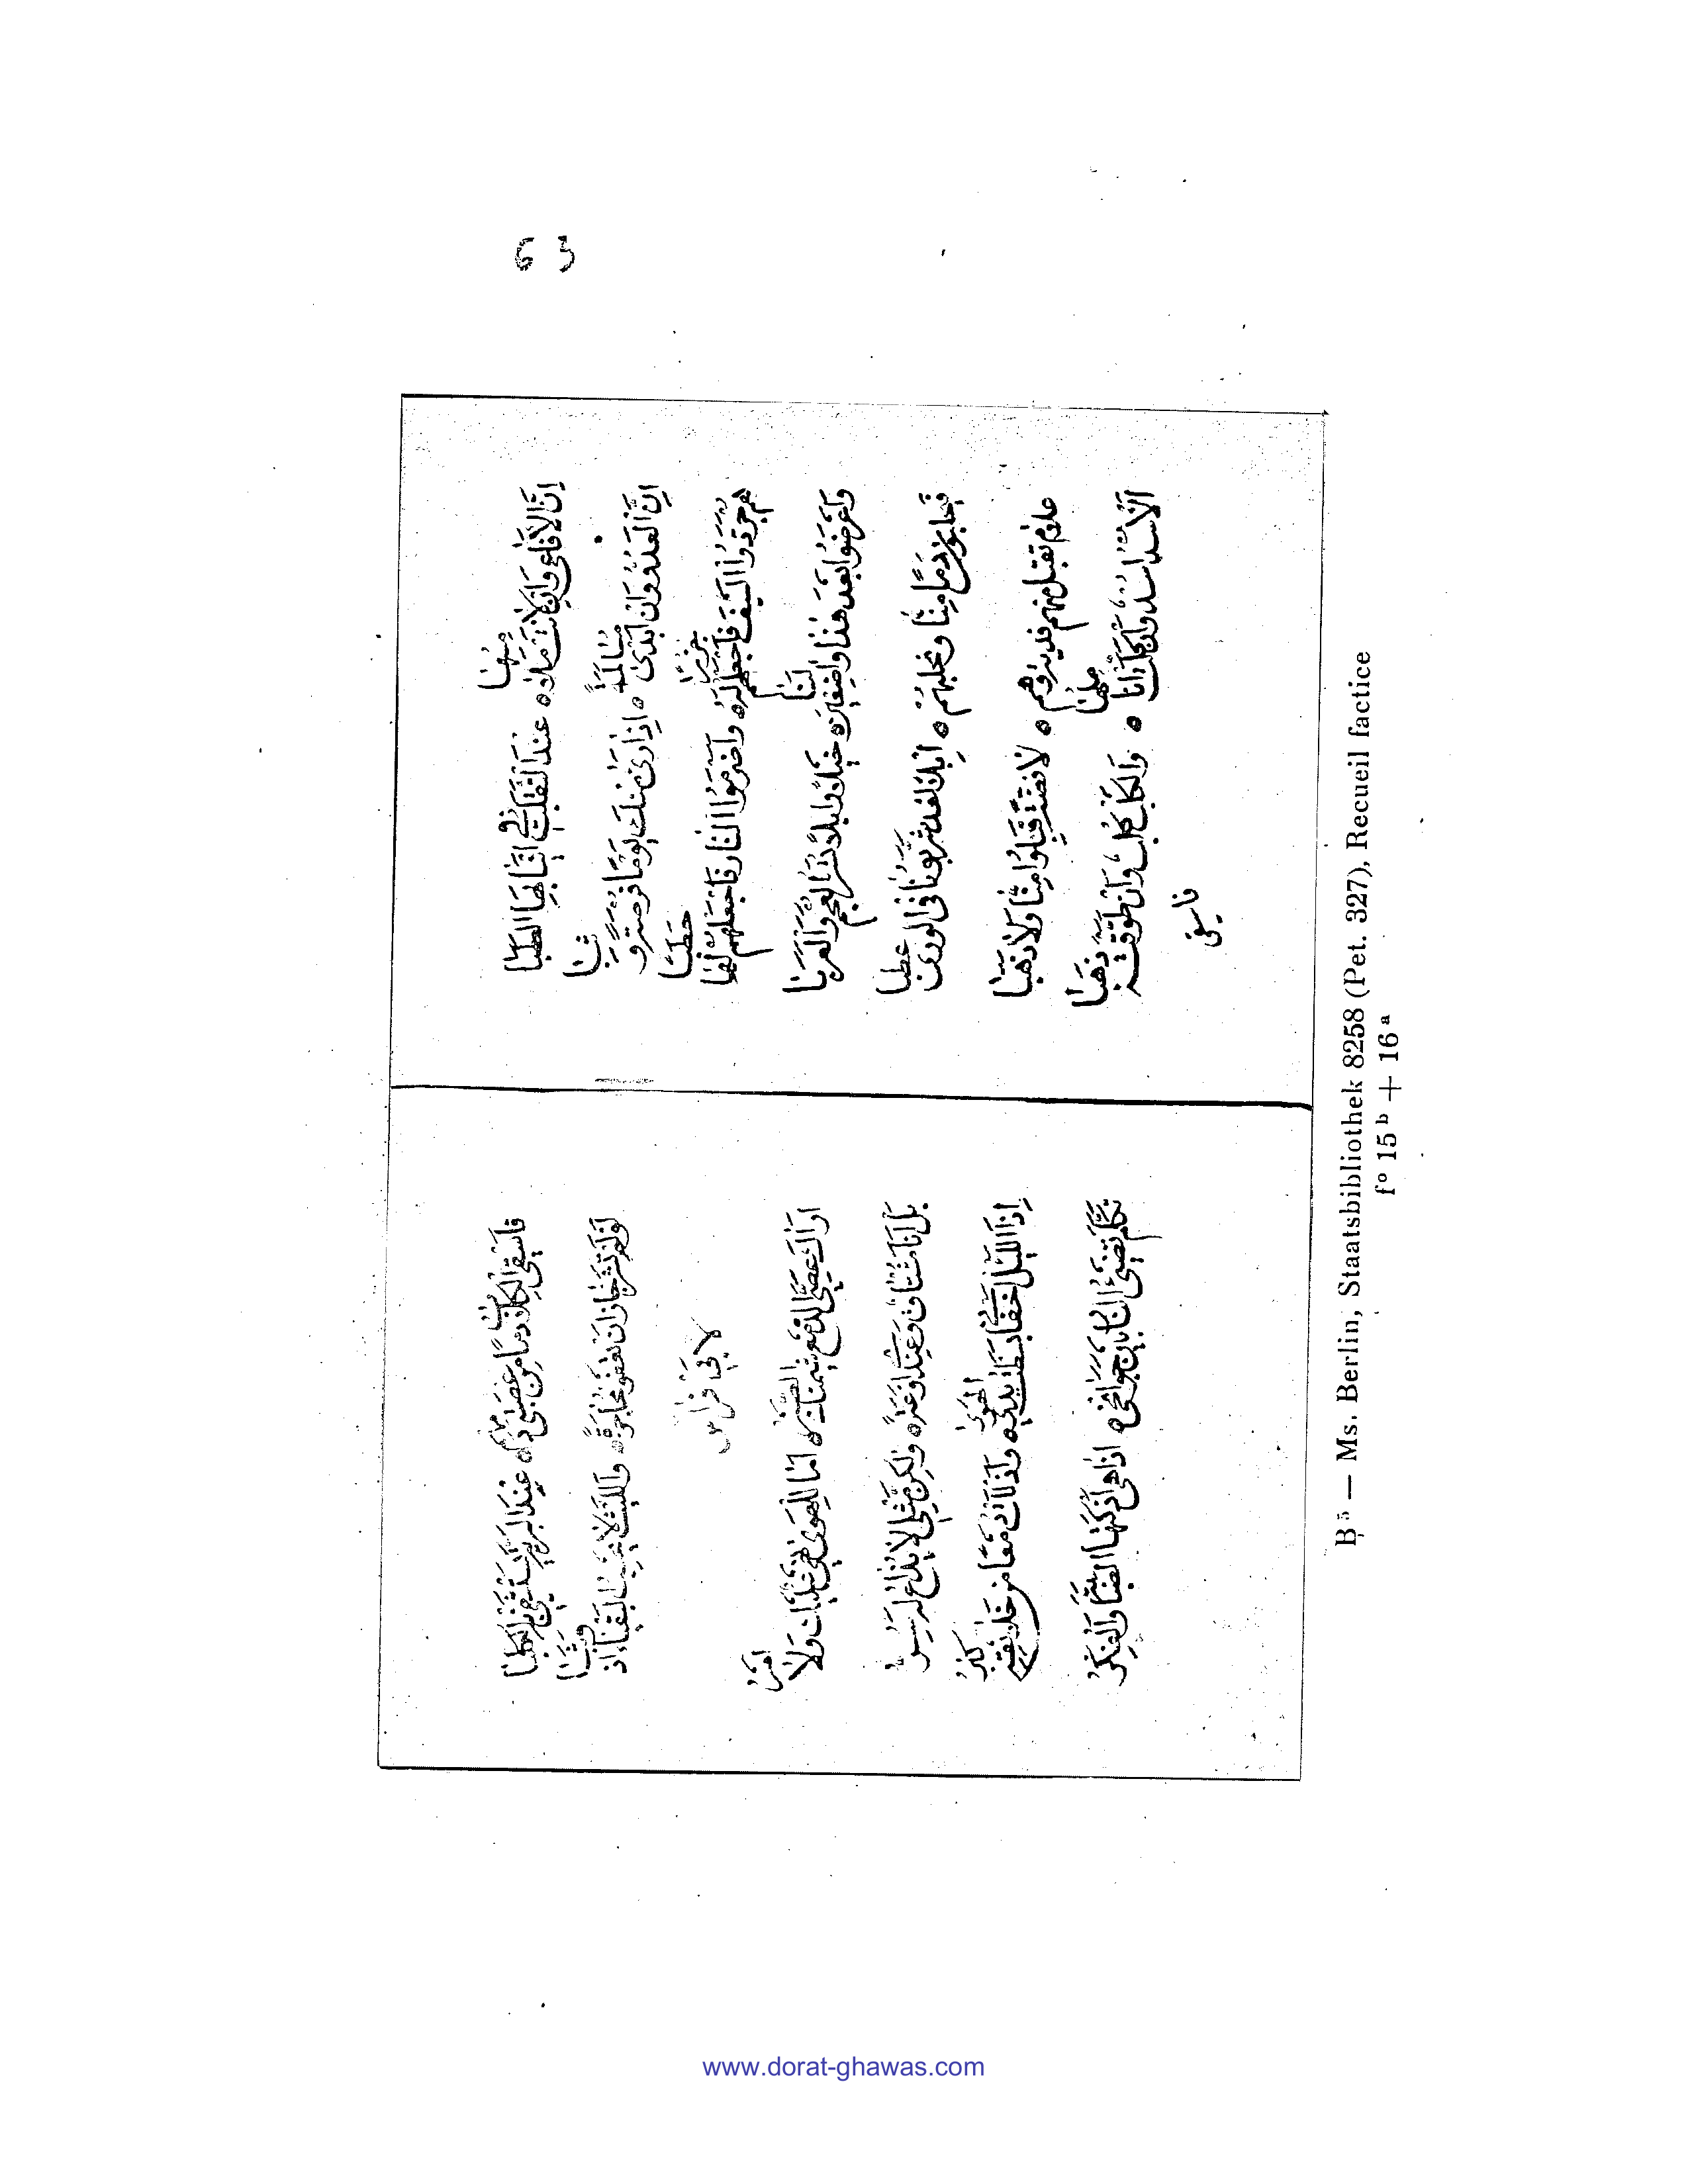 إن الأفاعي وإن لانت ملامسها ه عند التقلب في أنيابها العطبا
إن العدو وإن أبدى مسالمة ه إذا رأى منك يوما فرصة وثبا
هم جردوا السيف فاجعلهم له جزرا ه واضرموا النار فاجعلهم لها حطبا
واعرضوا بعد هذا واصفين لنا ه خيلا وابلا تسر العجم والعربا
دما منا ونحلبهم ه لقد شربونا في الورى
علام تقبل منهم فدية وهم ه لا فضة قبلوا منا ولا ذهبا
الأسد أسد وإن ه والكلب كلب وإن طوقته ذهبا
فاسقي
فاسقي الكلاب دما من ه عند البرية يستشفي به الكلبا
لو لم ه والليث لا البقيا اذ وثبا
لابي فراس
اراك عصي الدمع شيمتك الصبر ه اما للهوى نهي عليك ولا امر
بل انا مشتاق وعندي لوعة ه ولكن مثلي لا يذاع له سر
اذا الليل بسطت يد الهوى ه واذللت دمعا من خلائقه كبر
تكاد تضيء النار بين جوانحي ه اذا هي اذكتها الصبابة والفكر
B⁵ — Ms. Berlin, Staatsbibliothek 8258 (Pet. 327), Recueil factice
fº 15ᵇ + 16ᵃ
www.dorat-ghawas.com